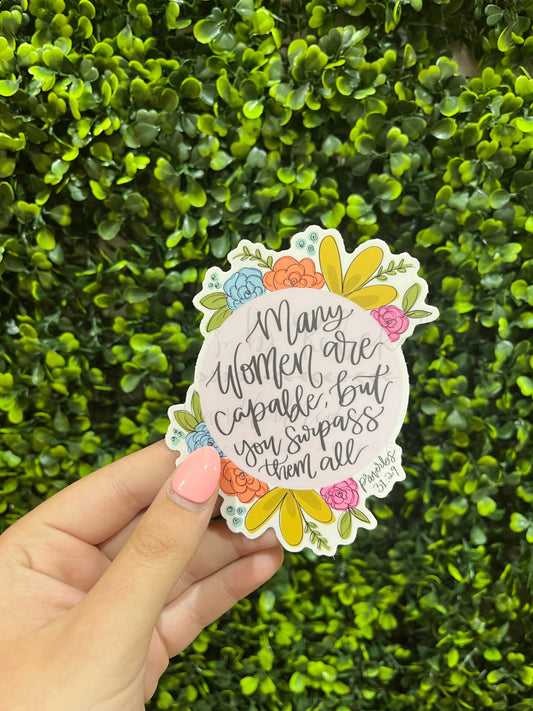 Many
Women are
capable, but
you surpass
them all
Proverbs
31:29